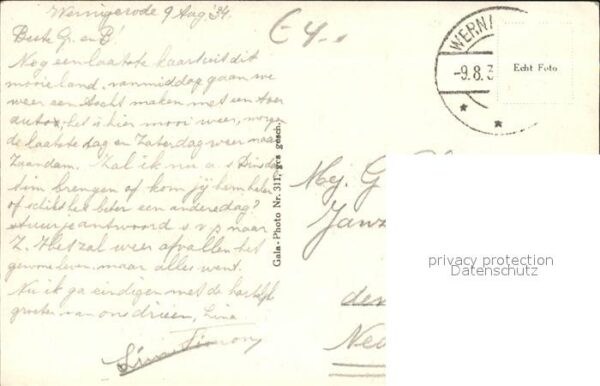 Wernigerode 9 Aug '34
Beste G. en B!
Nog een laatste kaart uit dit
mooie land, vanmiddag gaan we
weer een tocht maken met een toer
auto, het is hier mooi weer, morgen
de laatste dag en Zaterdag weer naar
Zaandam. Zal ik nu a.s Dinsdag
brengen of kom jij hem halen
of schikt het beter een andere dag?
stuur je antwoord s v p naar
Z. Het zal weer afvallen het
gewone leven, maar alles went.
Nu ik ga eindigen met de hartelijke
groeten van ons drieën, Lina
£4-
WERNI
-9.8.3
Echt Foto
Gala-Photo Nr. 311, ges gesch.
Mej. G
Janz
den
Ned
privacy protection
Datenschutz